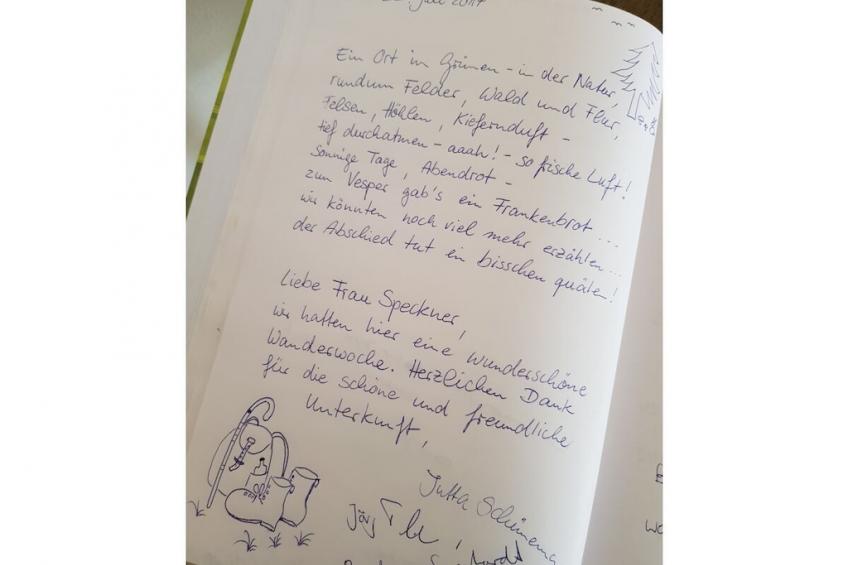 Juli 2017
Ein Ort im Grünen - in der Natur,
rundum Felder, Wald und Flur,
Felsen, Höhlen, Kiefernduft -
tief durchatmen - aaah! - so frische Luft!
sonnige Tage, Abendrot -
zum Vesper gab's ein Frankenbrot...
wir könnten noch viel mehr erzählen...
der Abschied tut ein bisschen quälen!
Liebe Frau Speckner,
wir hatten hier eine wunderschöne
Wanderwoche. Herzlichen Dank
für die schöne und freundliche
Unterkunft,
Jutta Schünema
Jörg